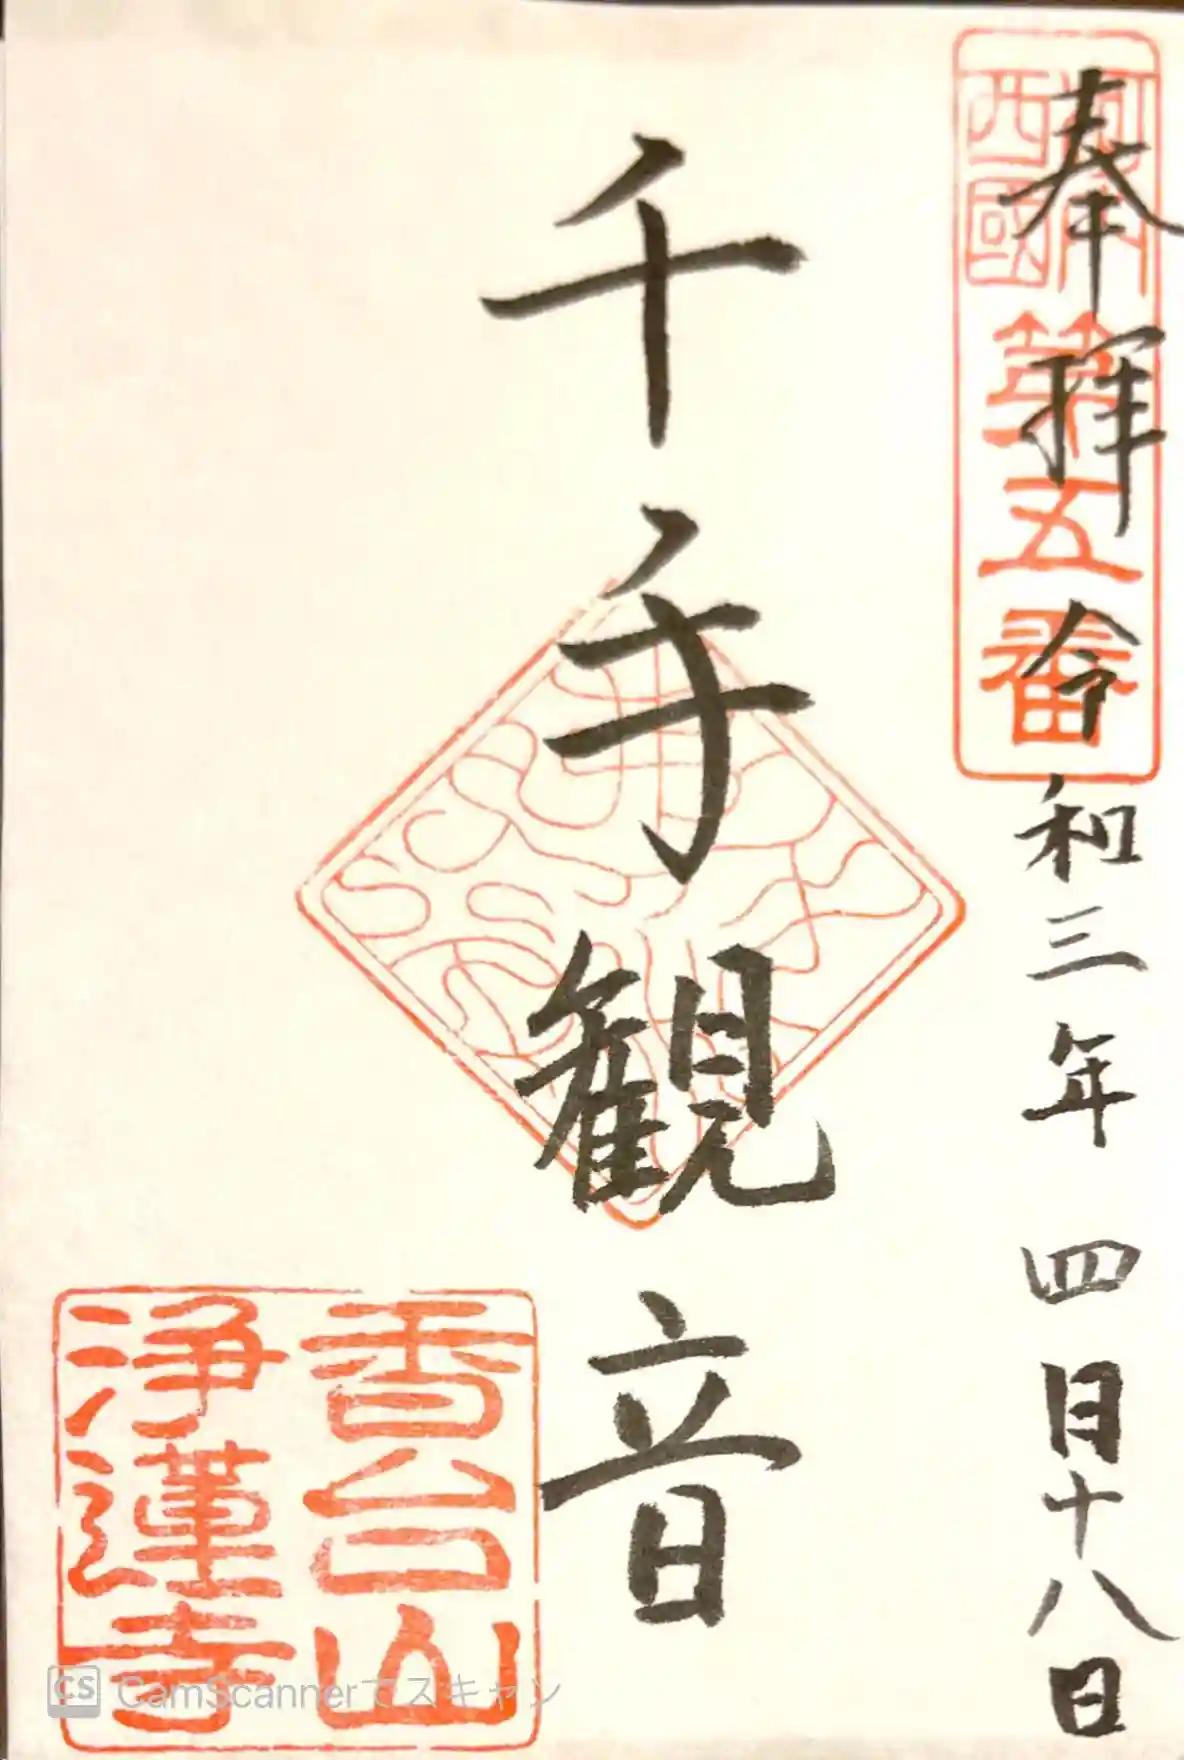 奉拝 令和三年 四月十八日
西國
第五番
千手観音
香台山
浄蓮寺
CS CamScannerでスキャン